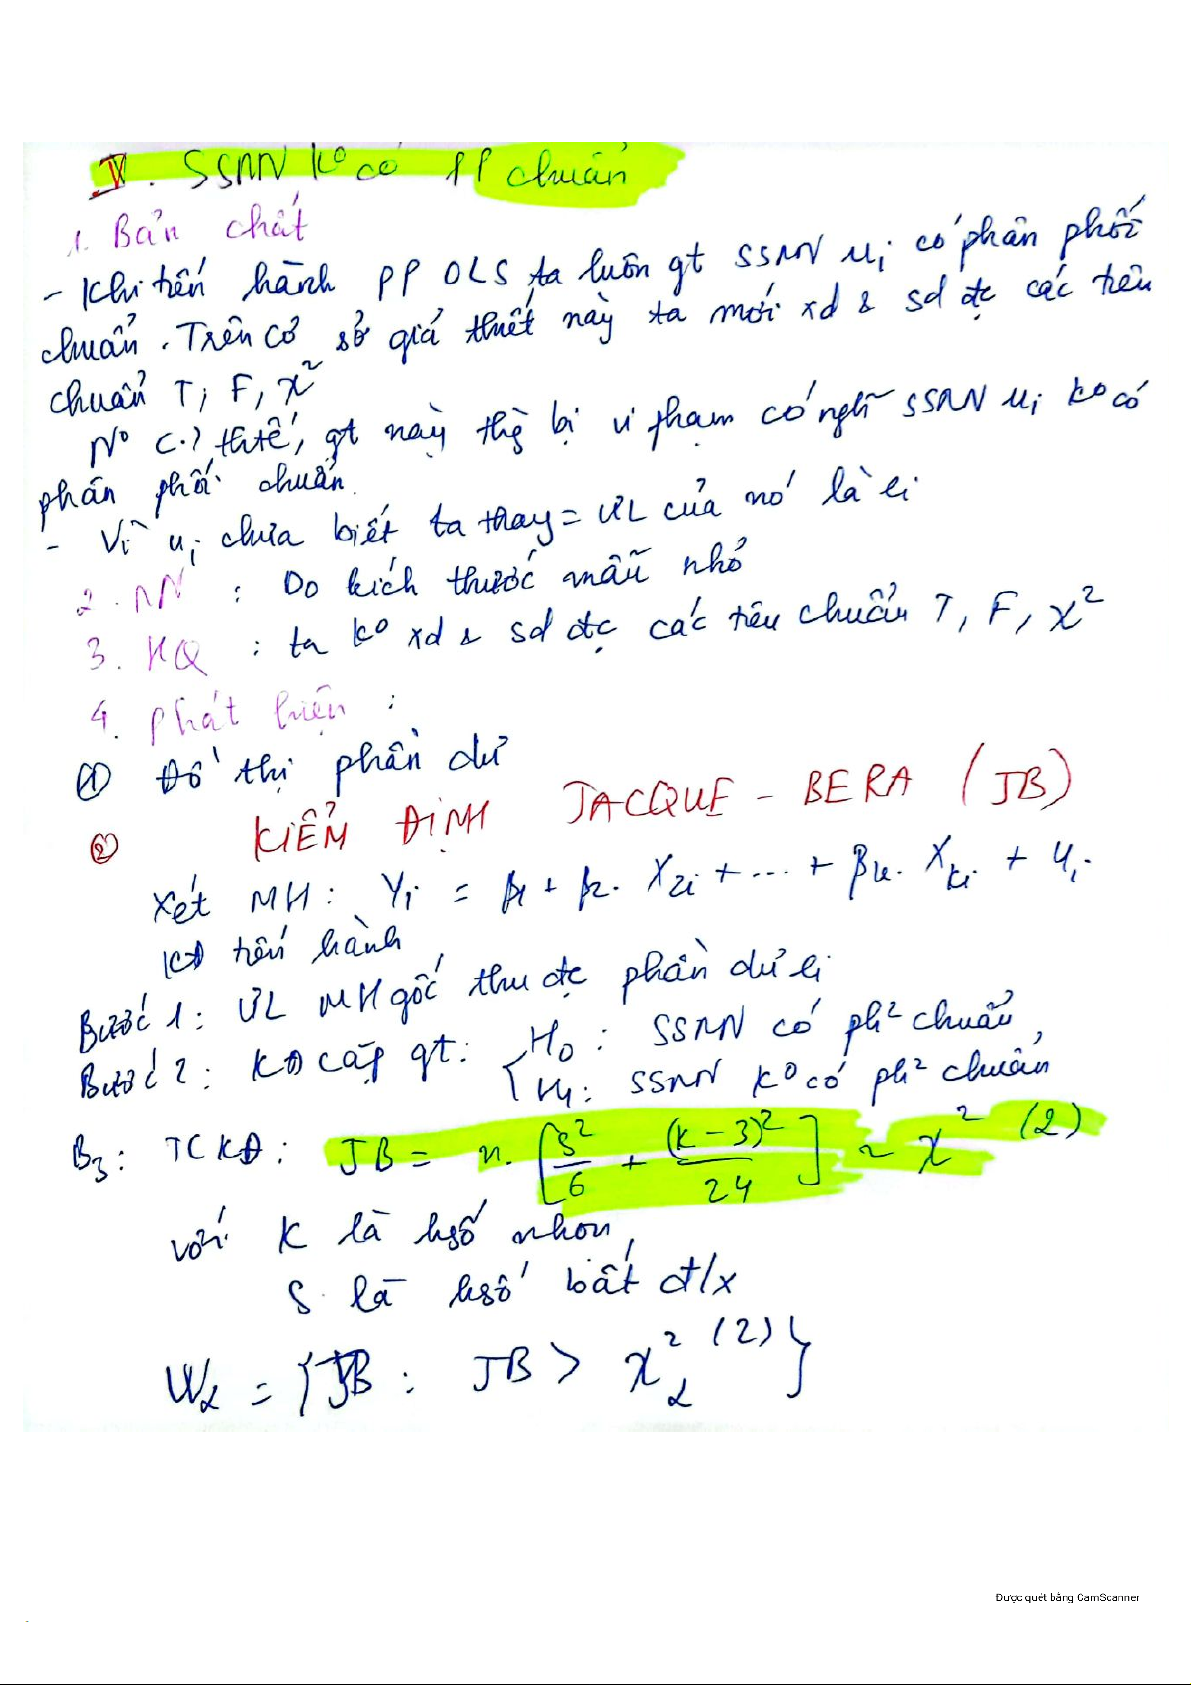 IV. SSNN k⁰ có PP chuẩn
1. Bản chất
- Khi tiến hành PP OLS ta luôn gt SSNN Ui có phân phối
chuẩn. Trên cơ sở giả thiết này ta mới xd & sd đc các tiêu
chuẩn T, F, χ²
N⁰ thế, gt này bị vi phạm có nghĩ SSNN Ui k⁰ có
phân phối chuẩn
- Vì ui chưa biết ta thay = ƯL của nó là ei
2. NN : Do kích thước mẫu nhỏ
3. HQ : ta k⁰ xd & sd đc các tiêu chuẩn T, F, χ²
4. phát hiện :
① Đồ thị phần dư
② KIỂM ĐỊNH JACQUE - BERA (JB)
Xét MH: Yi = β1 + β2. X2i + ... + βk. Xki + Ui
KĐ tiến hành
Bước 1: ƯL MH gốc thu đc phần dư ei
Bước 2: KĐ cặp gt: { H0 : SSNN có ph² chuẩn
H1: SSNN k⁰ có ph² chuẩn
B3: TCKĐ: JB = n. [S²/6 + (k-3)²/24] ~ χ² (2)
với K là hsố nhọn,
S là hsố bất đ/x
Wα = {JB : JB > χ²α (2)}
Được quét bằng CamScanner